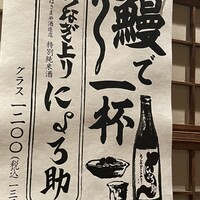 鰻で
一杯
はさまや酒造店 特別純米酒
うなぎ上り
にょろ助
グラス 一二〇〇(税込